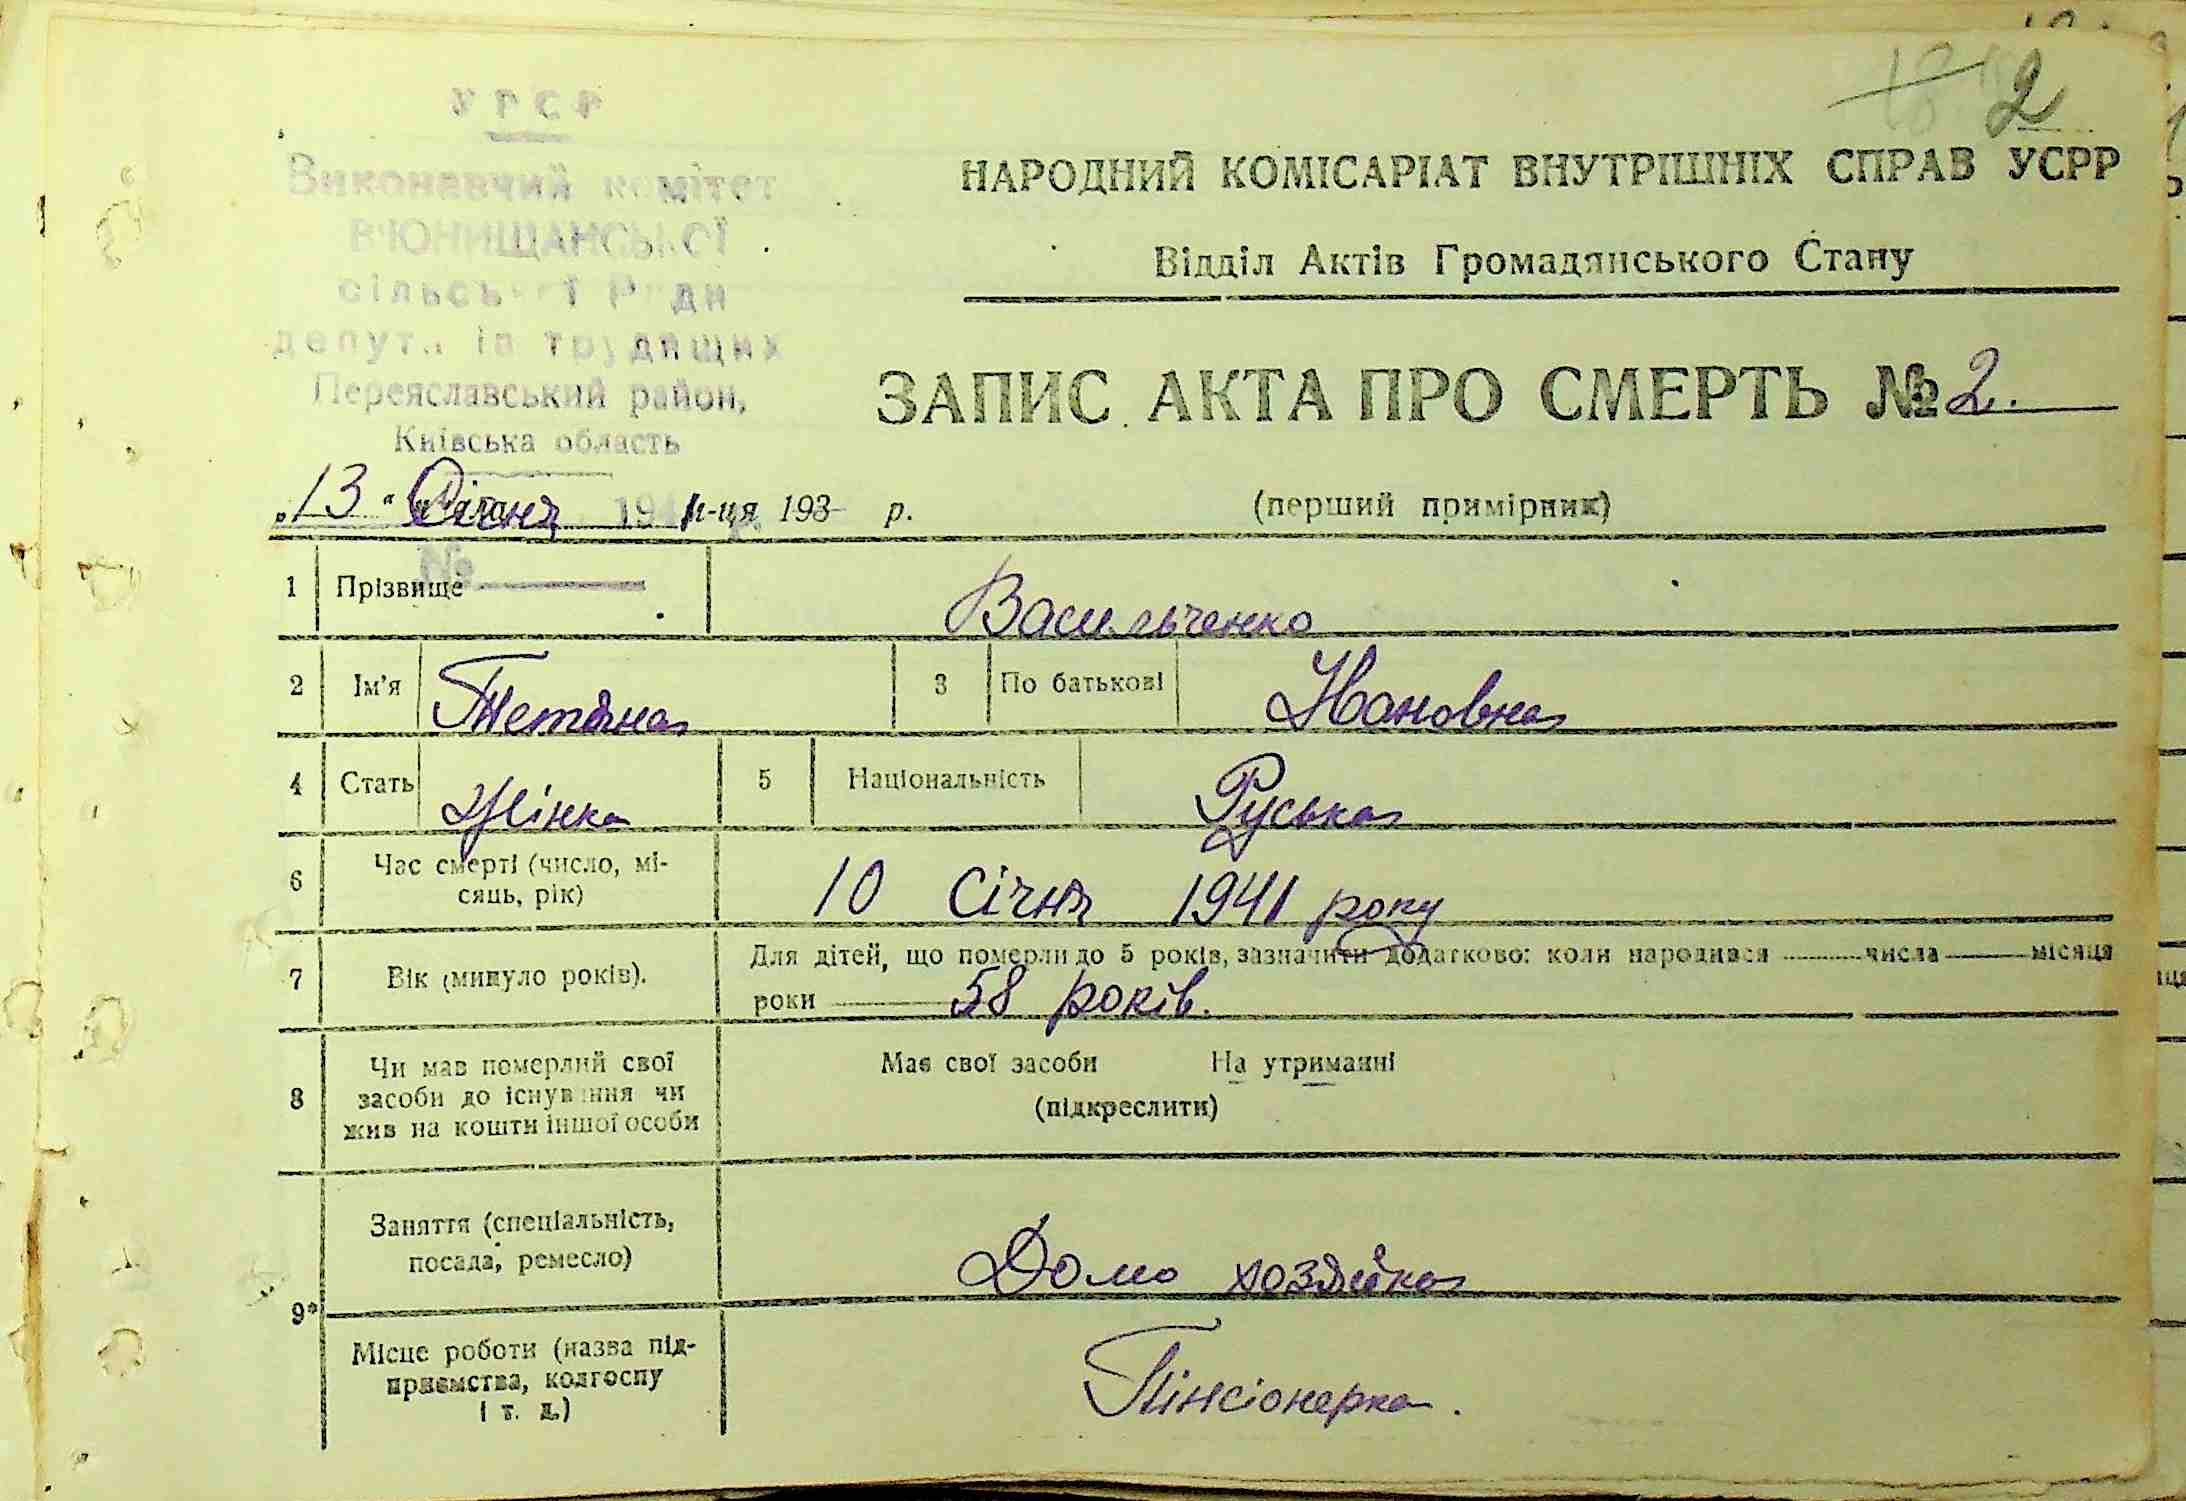 2
УРСР
Виконавчий комітет
В'ЮНИЩАНСЬКОЇ
сільської Ради
депутатів трудящих
Переяславський район,
Київська область
НАРОДНИЙ КОМІСАРІАТ ВНУТРІШНІХ СПРАВ УСРР
Відділ Актів Громадянського Стану
ЗАПИС АКТА ПРО СМЕРТЬ № 2.
„13“ Січня 1941 м-ця 193 р.
(перший примірник)
№
1 Прізвище Васильченко
2 Ім'я Тетяна 3 По батькові Івановна
4 Стать Жінка 5 Національність Руська
6 Час смерті (число, мі-
сяць, рік) 10 Січня 1941 року
7 Вік (минуло років). Для дітей, що померли до 5 років, зазначити додатково: коли народився числа місяця
роки 58 років.
8 Чи мав померлий свої
засоби до існування чи
жив на кошти іншої особи
Має свої засоби На утриманні
(підкреслити)
9* Заняття (спеціальність,
посада, ремесло) Домо хозяйка
Місце роботи (назва під-
приємства, колгоспу
і т. д.) Пінсіонерка.